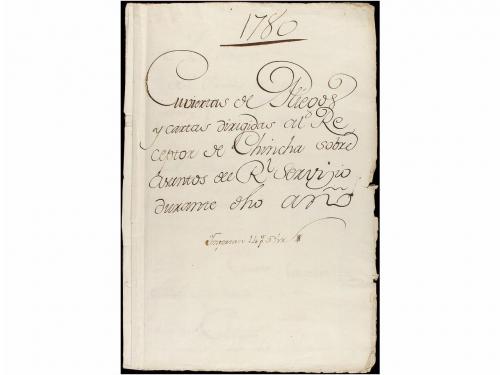 1780
Cuviertas de Pliegos
y cartas dirigidas al Re
ceptor de Chincha sobre
Asuntos del Rl. Servizio
durante dho año